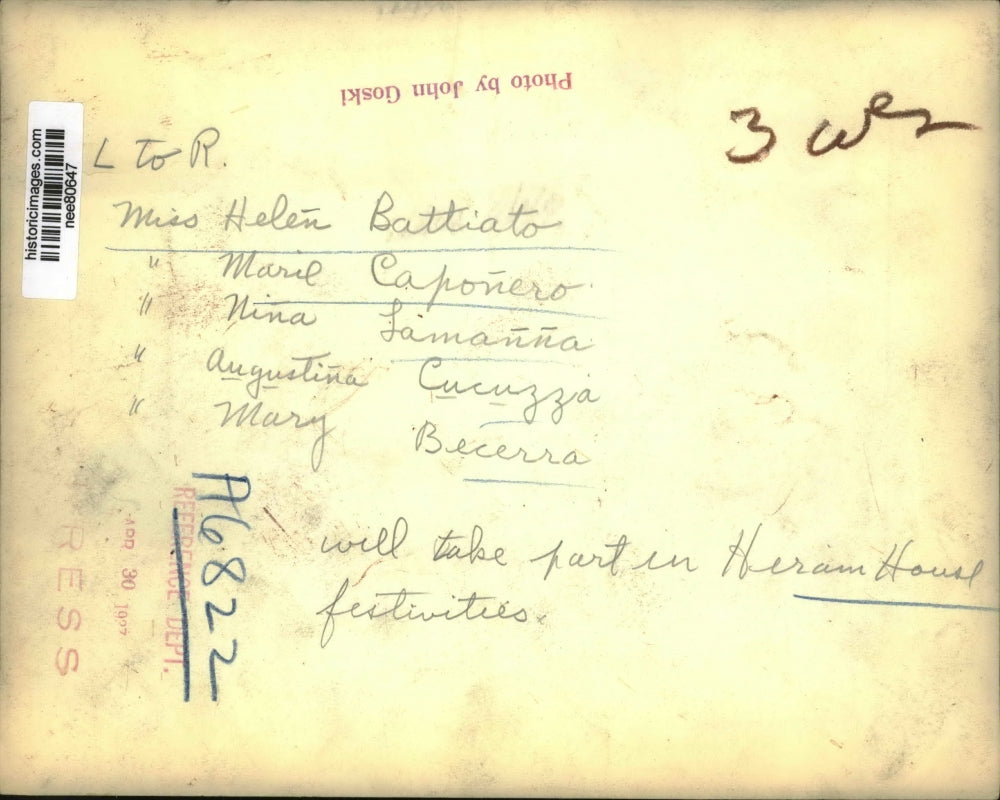 Photo by John Goski
3
historicimages.com
nee80647
L to R.
Miss Helen Battiato
" Marie Caponero
" Nina Lamanna
" Augustina Cucuzza
" Mary Becerra
will take part in Heram House
festivities.
A6822
REFERENCE DEPT.
APR 30
RESS